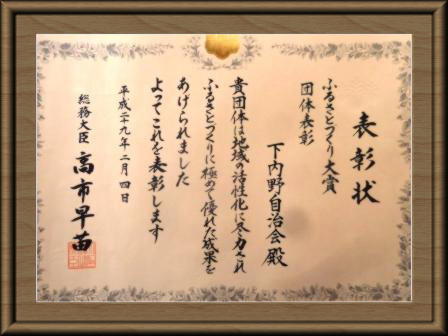 表彰状
ふるさとづくり大賞
団体表彰
下内野自治会殿
貴団体は地域の活性化に尽力され
ふるさとづくりに極めて優れた成果を
あげられました
よってこれを表彰します
平成二十九年二月四日
総務大臣 高市早苗